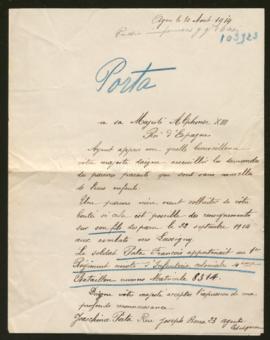 le 10 Août 1919
103923
Porta
a sa Majesté Alphonse XIII
Roi d'Espagne
Ayant appris avec quelle bienveillance
votre majesté daigne accueillir les demandes
de pauvres parents qui sont sans nouvelles
de leurs enfants.
Une pauvre mère vient solliciter de votre
bonté si cela est possible des renseignements
sur son fils disparu le 22 septembre 1914
aux combats vers Lassigny.
Le soldat Porta François appartenait au 1er
Régiment mixte d'Infanterie coloniale 4eme
Bataillon numéro Matricule 8314.
Daigne votre majesté accepter l'expression de ma
profonde reconnaissance.
Joachine Porta Rue Joseph 23